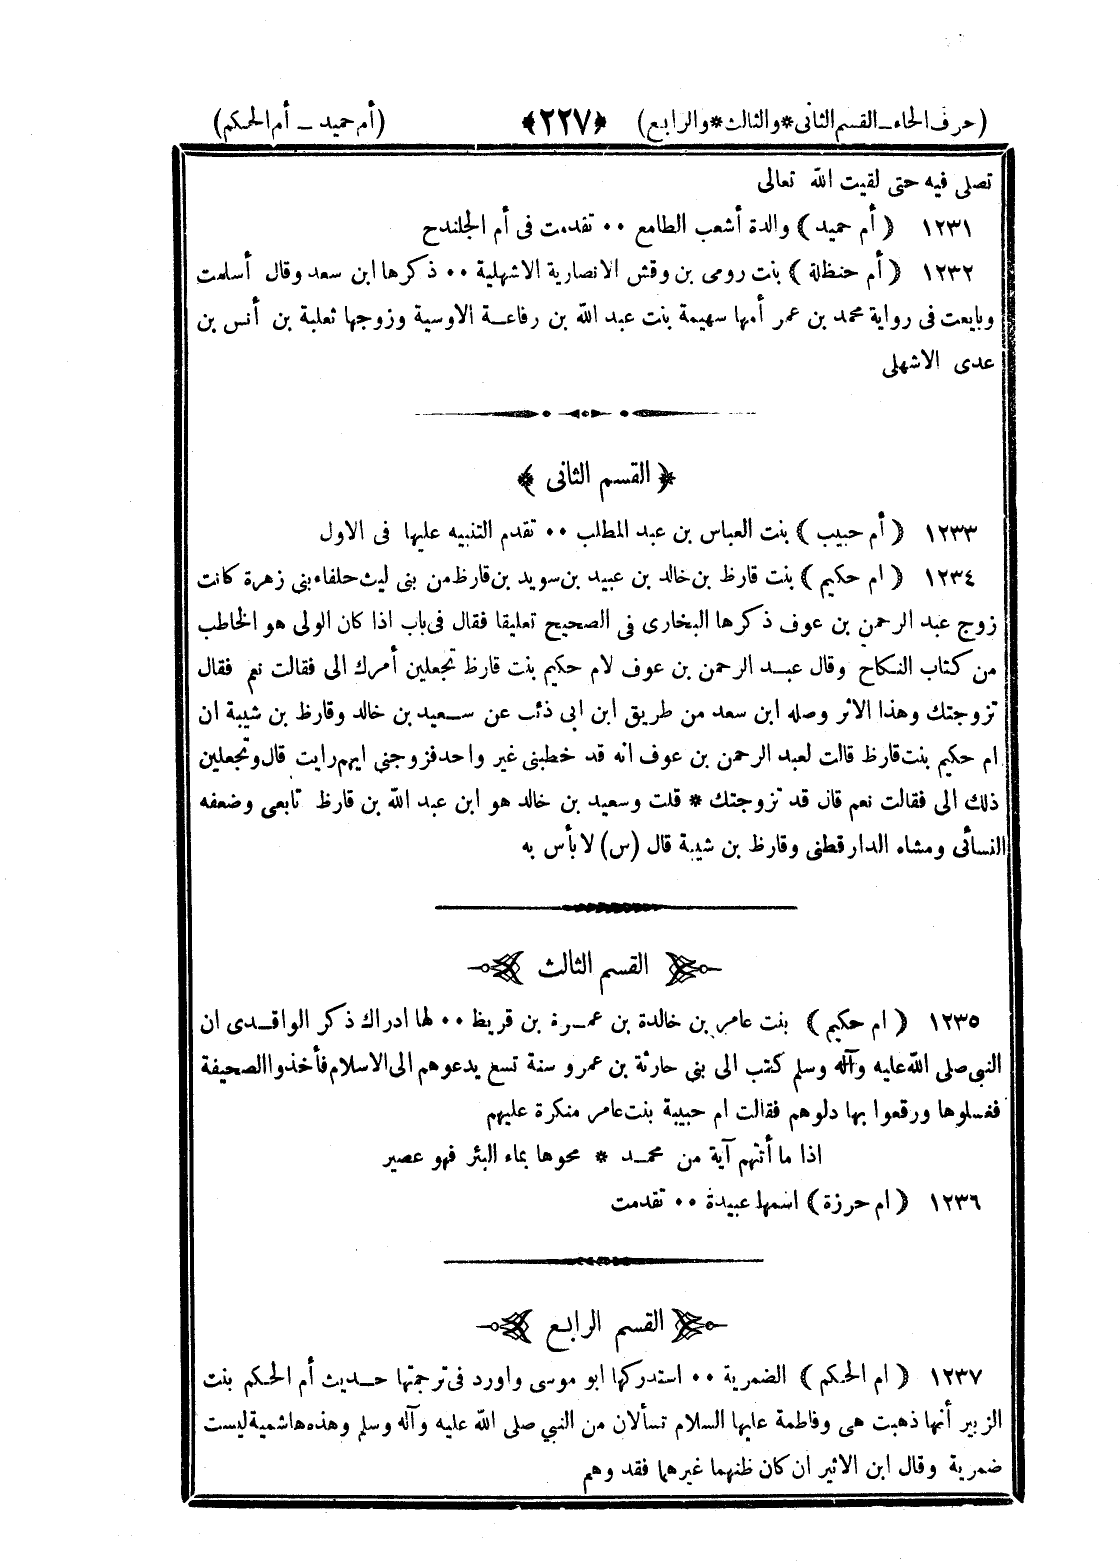 (حرف الحاء ـ القسم الثانى * والثالث * والرابع) ﴿٢٢٧﴾ (أم حميد ـ أم الحكم)
تصلى فيه حتى لقيت الله تعالى
١٢٣١ ﴿ أم حميد ﴾ والدة أشعب الطامع ٠٠ تقدمت فى أم الجلندح
١٢٣٢ ﴿ أم حنظلة ﴾ بنت رومى بن وقش الانصارية الاشهلية ٠٠ ذكرها ابن سعد وقال أسلمت
وبايعت فى رواية محمد بن عمر أمها سهيمة بنت عبد الله بن رفاعة الاوسية وزوجها ثعلبة بن أنس بن
عدى الاشهلى
﴿ القسم الثانى ﴾
١٢٣٣ ﴿ أم حبيب ﴾ بنت العباس بن عبد المطلب ٠٠ تقدم التنبيه عليها فى الاول
١٢٣٤ ﴿ ام حكيم ﴾ بنت قارظ بن خالد بن عبيد بن سويد بن قارظ من بنى ليث حلفاء بنى زهرة كانت
زوج عبد الرحمن بن عوف ذكرها البخارى فى الصحيح تعليقا فقال فى باب اذا كان الولى هو الخاطب
من كتاب النكاح وقال عبد الرحمن بن عوف لام حكيم بنت قارظ تجعلين أمرك الى فقالت نعم فقال
تزوجتك وهذا الاثر وصله ابن سعد من طريق ابن ابى ذئب عن سعيد بن خالد وقارظ بن شيبة ان
ام حكيم بنت قارظ قالت لعبد الرحمن بن عوف انه قد خطبنى غير واحد فزوجني ايهم رايت قال وتجعلين
ذلك الى فقالت نعم قال قد تزوجتك * قلت وسعيد بن خالد هو ابن عبد الله بن قارظ تابعى وضعفه
النسائى ومشاه الدارقطنى وقارظ بن شيبة قال (س) لا بأس به
القسم الثالث
١٢٣٥ ﴿ ام حكيم ﴾ بنت عامر بن خالدة بن عمرة بن قريظ ٠٠ لها ادراك ذكر الواقدى ان
النبى صلى الله عليه وآله وسلم كتب الى بنى حارثة بن عمرو سنة تسع يدعوهم الى الاسلام فأخذوا الصحيفة
فغسلوها ورقعوا بها دلوهم فقالت ام حبيبة بنت عامر منكرة عليهم
اذا ما أتتهم آية من محمد * محوها بماء البئر فهو عصير
١٢٣٦ ﴿ ام حرزة ﴾ اسمها عبيدة ٠٠ تقدمت
القسم الرابع
١٢٣٧ ﴿ ام الحكم ﴾ الضمرية ٠٠ استدركها ابو موسى واورد فى ترجمتها حديث أم الحكم بنت
الزبير أنها ذهبت هى وفاطمة عليها السلام تسألان من النبي صلى الله عليه وآله وسلم وهذه هاشمية ليست
ضمرية وقال ابن الاثير ان كان ظنهما غيرهما فقد وهم